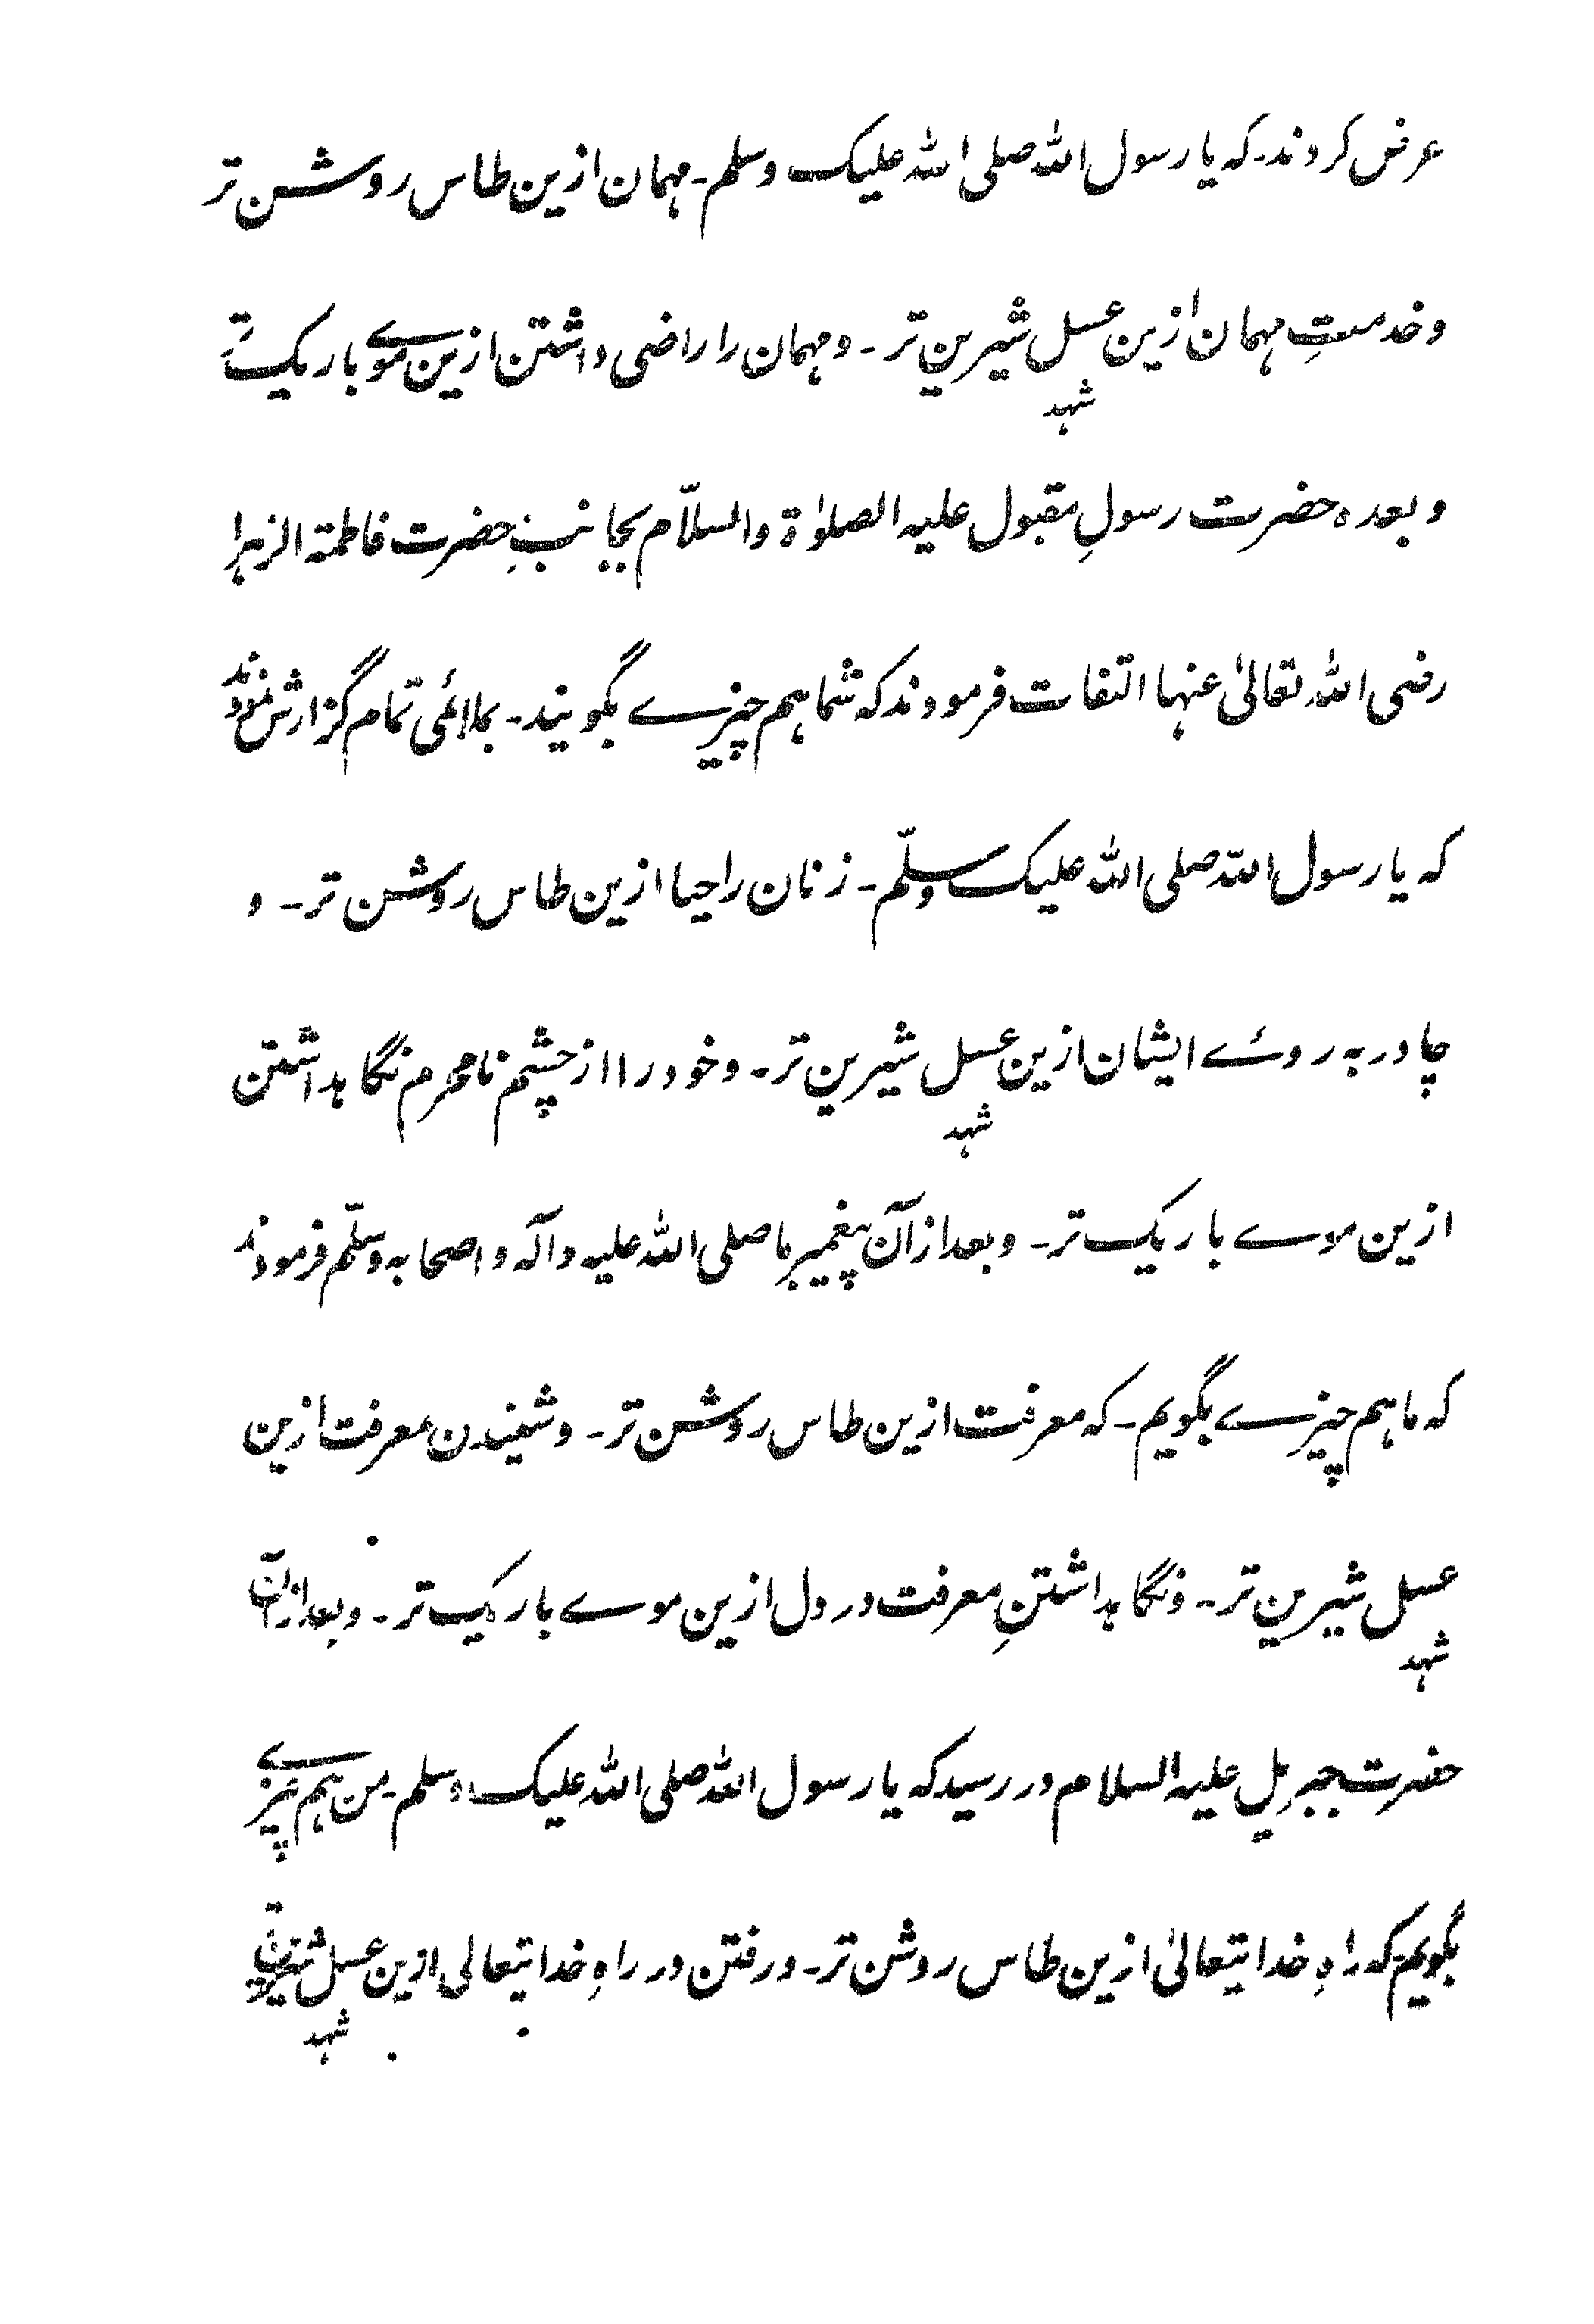 عرض کردند۔ کہ یا رسول اللہ صلی اللہ علیک وسلم۔ مہمان ازین طاس روشن تر
و خدمتِ مہمان ازین عسل شیرین تر۔ و مہمان را راضی داشتن ازین موے باریک تر
شہد
و بعدہ حضرت رسولِ مقبول علیہ الصلوٰۃ والسلّام بجانبِ حضرت فاطمۃ الزہرا
رضی اللہ تعالیٰ عنہا التفات فرمودند کہ شما ہم چیزے بگویند۔ تمام گزارش نمودند
کہ یا رسول اللہ صلی اللہ علیک وسلّم۔ زنان را حیا ازین طاس روشن تر۔ و
چادر بہ روئے ایشان ازین عسل شیرین تر۔ و خود را از چشم نامحرم نگاہداشتن
شہد
ازین موے باریک تر۔ و بعد ازآن پیغمبر ما صلی اللہ علیہ وآلہ واصحابہ وسلّم فرمودند
کہ ما ہم چیزے بگویم۔ کہ معرفت ازین طاس روشن تر۔ و شنیدن معرفت ازین
عسل شیرین تر۔ ونگاہداشتنِ معرفت در دل ازین موے باریک تر۔ و بعد ازآن
شہد
حضرت جبریل علیہ السلام در رسید کہ یا رسول اللہ صلی اللہ علیک وسلم۔ من ہم چیزے
بگویم کہ راہِ خدایتعالیٰ ازین طاس روشن تر۔ و رفتن در راہِ خدایتعالی ازین عسل شیرین تر
شہد